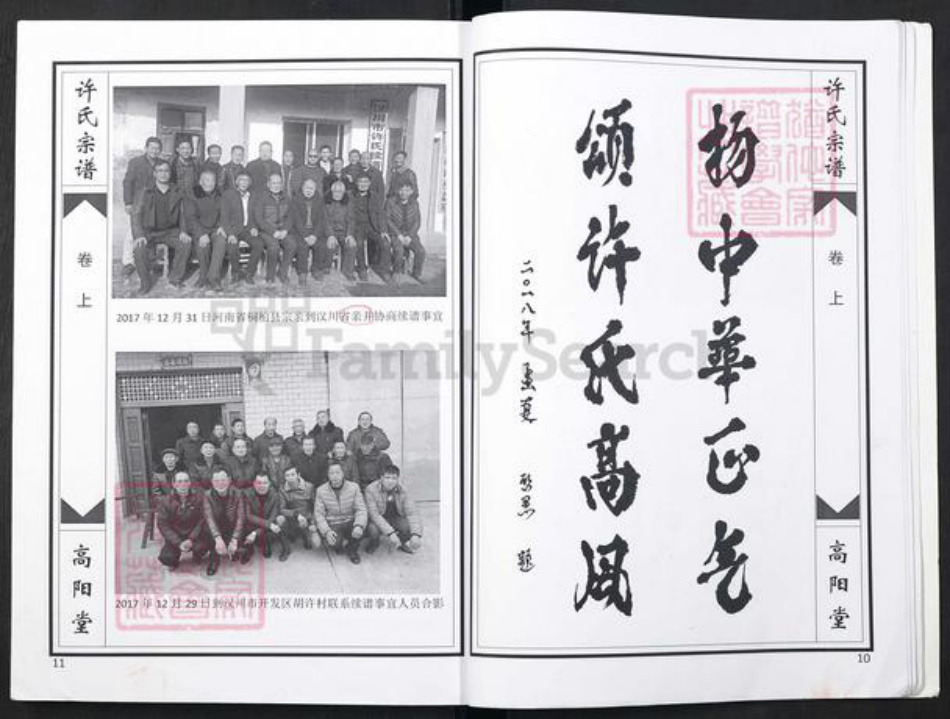 许氏宗谱
卷上
高阳堂
扬中华正气
颂许氏高风
二〇一八年
题
10
许氏宗谱
卷上
高阳堂
2017年12月31日河南省桐柏县宗亲到汉川省亲并协商续谱事宜
2017年12月29日到汉川市开发区胡许村联系续谱事宜人员合影
11
FamilySearch